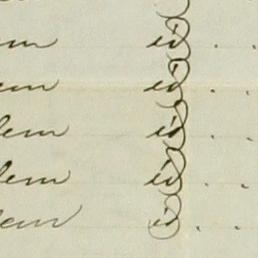 em id . .
em id . .
dem id . .
dem id . .
dem id . .